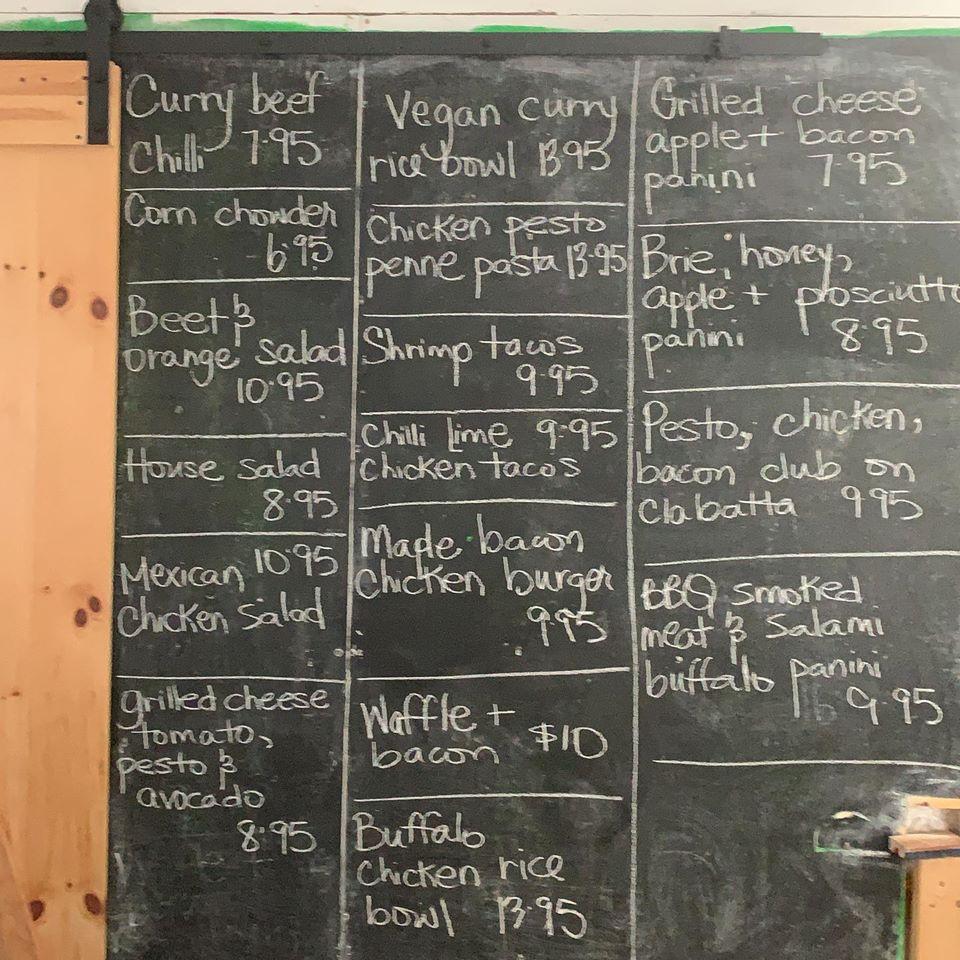 Curry beef
Chilli 7.95
Corn chowder
6.95
Beet &
orange salad
10.95
House salad
8.95
Mexican 10.95
Chicken Salad
grilled cheese
tomato,
pesto &
avocado
8.95
Vegan curry
rice bowl 13.95
Chicken pesto
penne pasta 13.95
Shrimp tacos
9.95
Chilli Lime 9.95
Chicken tacos
Maple bacon
Chicken burger
9.95
Waffle +
bacon $10
Buffalo
Chicken rice
bowl 13.95
Grilled cheese
apple + bacon
panini 7.95
Brie, honey,
apple + prosciutto
panini 8.95
Pesto, chicken,
bacon club on
Ciabatta 9.95
BBQ smoked
meat & Salami
buffalo panini
9.95